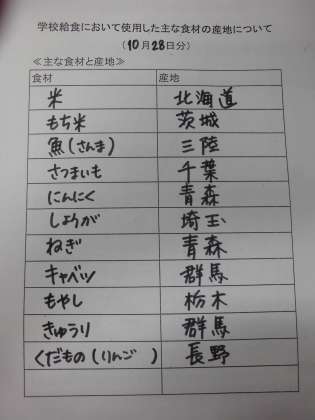 学校給食において使用した主な食材の産地について
(10月28日分)
≪主な食材と産地≫
食材 産地
米 北海道
もち米 茨城
魚(さんま) 三陸
さつまいも 千葉
にんにく 青森
しょうが 埼玉
ねぎ 青森
キャベツ 群馬
もやし 栃木
きゅうり 群馬
くだもの(りんご ) 長野